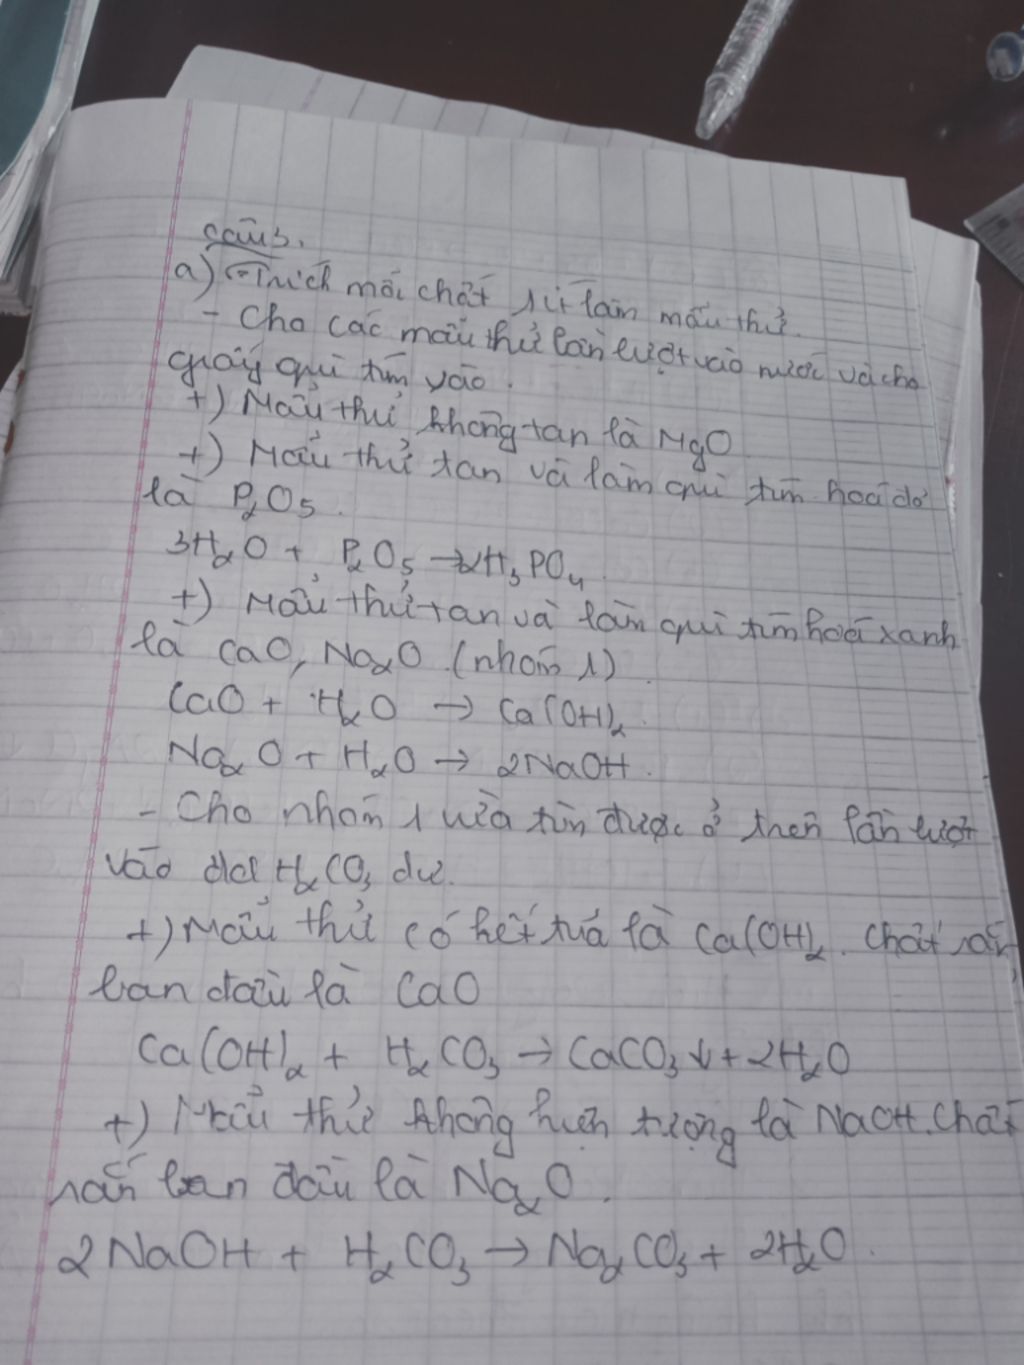 Câu 3.
a) - Trích mỗi chất 1 ít làm mẫu thử.
- Cho các mẫu thử lần lượt vào nước và cho
giấy quì tím vào.
+) Mẫu thử không tan là MgO
+) Mẫu thử tan và làm quì tím hoá đỏ
là P2O5.
3H2O + P2O5 → 2H3PO4
+) Mẫu thử tan và làm quì tím hoá xanh
là CaO, Na2O (nhóm 1)
CaO + H2O → Ca(OH)2.
Na2O + H2O → 2NaOH.
- Cho nhóm 1 vừa tìm được ở trên lần lượt
vào dd H2CO3 dư.
+) Mẫu thử có kết tủa là Ca(OH)2. Chất rắn
ban đầu là CaO
Ca(OH)2 + H2CO3 → CaCO3↓ + 2H2O
+) Mẫu thử không hiện tượng là NaOH. Chất
rắn ban đầu là Na2O.
2NaOH + H2CO3 → Na2CO3 + 2H2O.